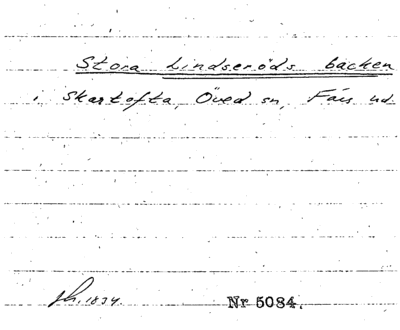 Stora Lindseröds backen
i Skartofta, Öved sn, Färs hd
sk. 1834.
Nr 5084.